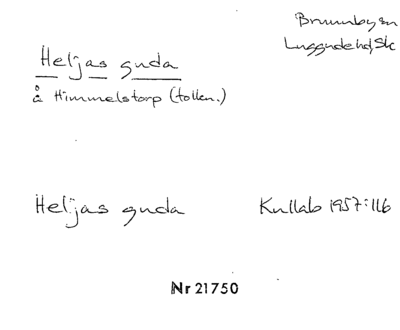 Brunnby sn
Luggude hd, Sk
Heljas guda
å Himmelstorp (tollen.)
Heljas guda Kullab 1957:116
Nr 21750